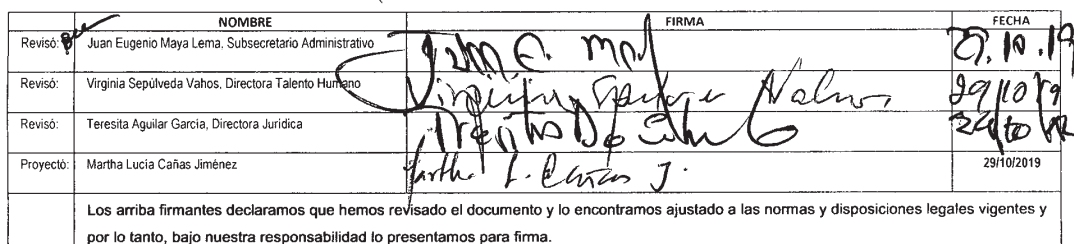 NOMBRE FIRMA FECHA
Revisó: Juan Eugenio Maya Lema, Subsecretario Administrativo Juan E. M
Revisó: Virginia Sepúlveda Vahos, Directora Talento Humano Virginia Sepúlveda Vahos 29/10/19
Revisó: Teresita Aguilar García, Directora Jurídica
Proyectó: Martha Lucía Cañas Jiménez Martha L. Cañas J. 29/10/2019
Los arriba firmantes declaramos que hemos revisado el documento y lo encontramos ajustado a las normas y disposiciones legales vigentes y
por lo tanto, bajo nuestra responsabilidad lo presentamos para firma.